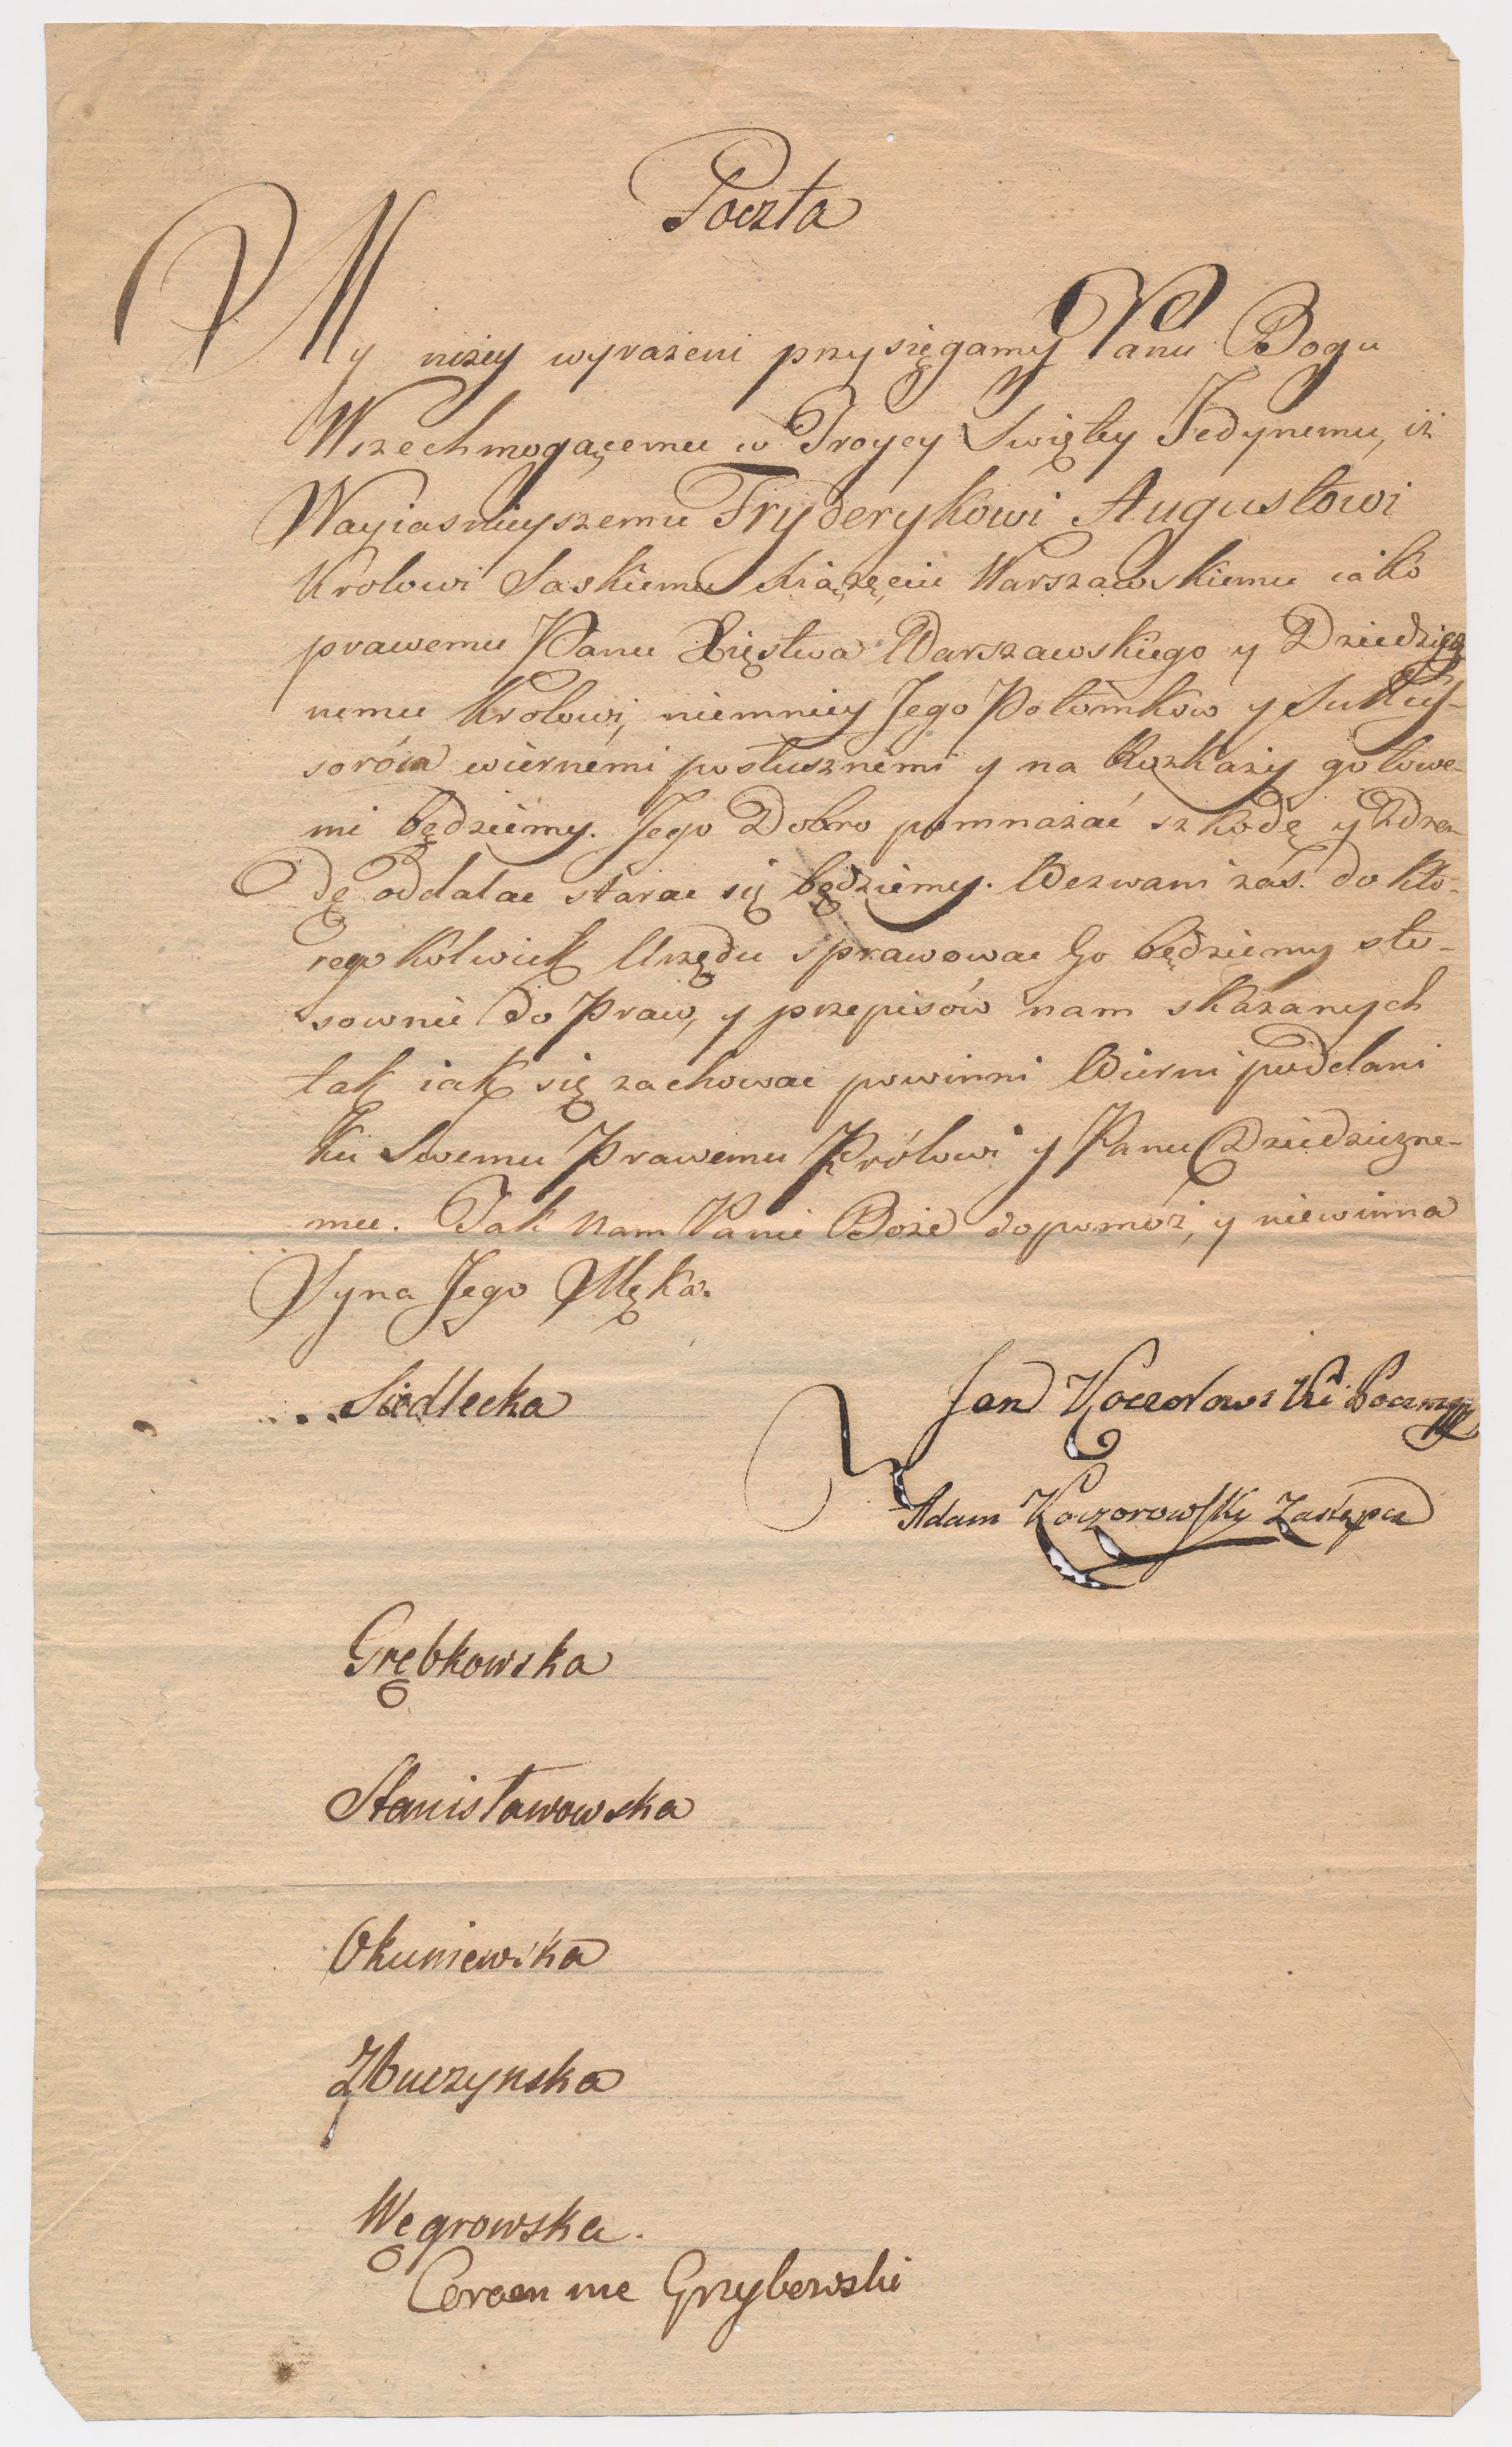 Poczta
My niżey wyrażeni przysięgamy Panu Bogu
Wszechmogącemu w Troycy Swiętey Jedynemu, iż
Nayiasnieyszemu Fryderykowi Augustowi
Krolowi Saskiemu Książęciu Warszawskiemu iako
prawemu Panu Xięstwa Warszawskiego y Dziedzicz
nemu Krolowi, niemniey Jego Potomkow y Sukcey-
sorów wiernemi posłusznemi y na Rozkazy gotowe-
mi będziemy. Jego Dobro pomnażać szkodę y Zdra-
dę oddalac starac się będziemy. Wezwani zaś. do kto-
regokolwiek Urzędu sprawowac Go będziemy sto-
sownie do Praw, y przepisów nam skazanych
tak iak się zachowac powinni Wierni poddani
Ku Swemu Prawemu Królowi y Panu Dziedziczne-
mu. Tak Nam Panie Boże dopomóż, y niewinna
Syna Jego Męka.
Siedlecka
Jan Koczorowski
Adam Koczorowsky Zastępca
Grębkowska
Stanisławowska
Okuniewska
Zbuczynska
Węgrowska.
Grzybowski